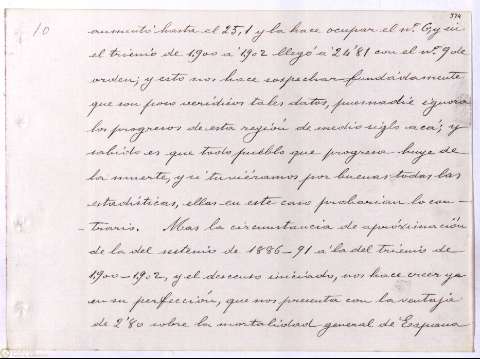 10
374
aumentó hasta el 25,1 y la hace ocupar el nº. 6, y en
el trienio de 1900 a 1902 llegó á 24'81 con el nº. 9 de
orden; y esto nos hace sospechar fundádamente
que son poco verídicos tales datos, pues nadie ignora
los progresos de esta región de medio siglo acá; y
sabido es que todo pueblo que progresa huye de
la muerte, y si tuviéramos por buenas todas las
estadísticas, ellas en este caso probarían lo con-
-trario. Mas la circunstancia de apróximación
de la del setenio de 1886-91 á la del trienio de
1900-1902, y el descenso iniciado, nos hace creer ya
en su perfección, que nos presenta con la ventaja
de 2'80 sobre la mortalidad general de España